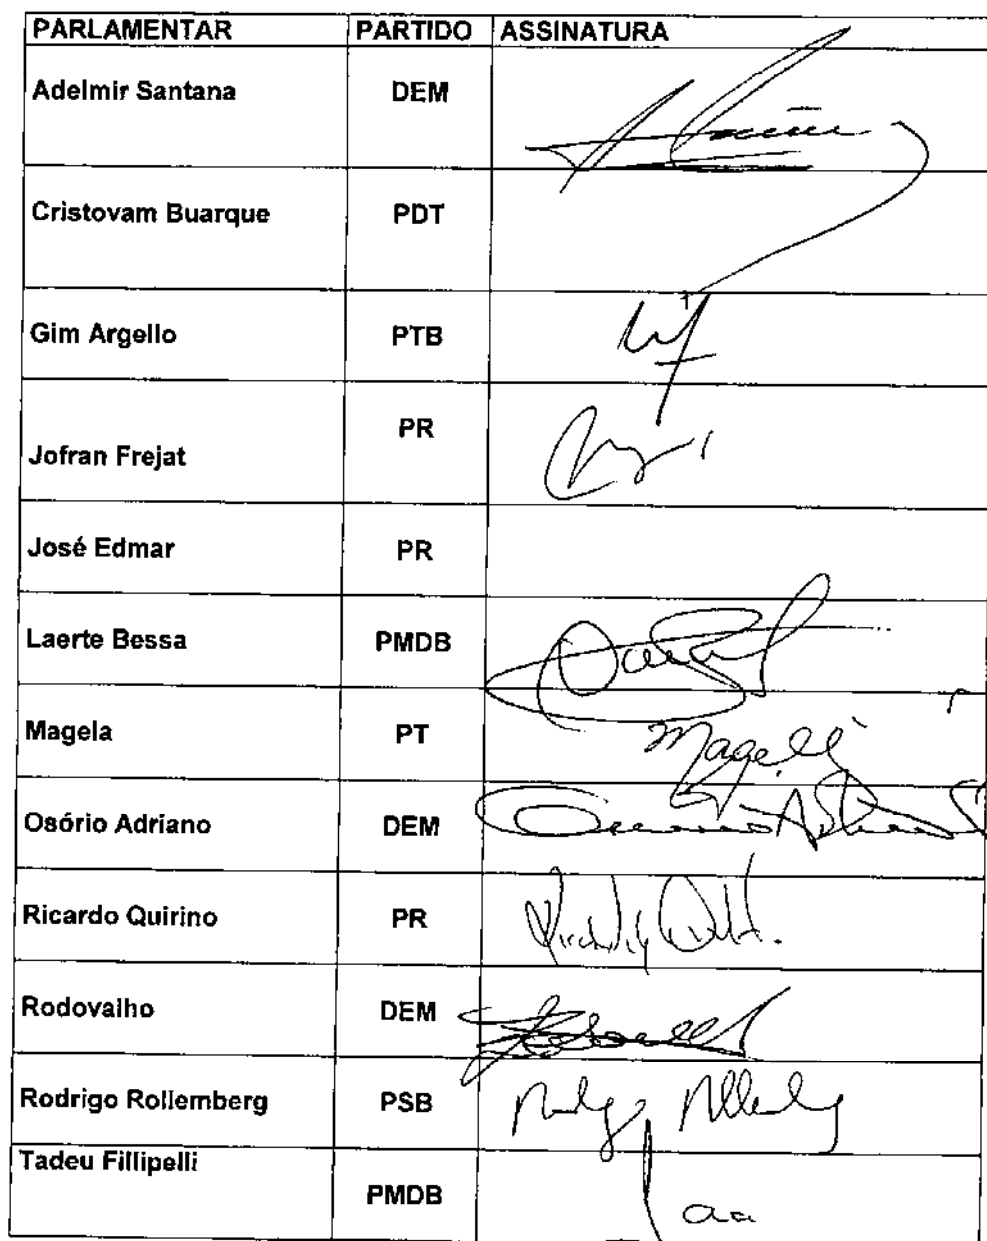 PARLAMENTAR PARTIDO ASSINATURA
Adelmir Santana DEM
Cristovam Buarque PDT
Gim Argello PTB
Jofran Frejat PR
José Edmar PR
Laerte Bessa PMDB
Magela PT Magela
Osório Adriano DEM
Ricardo Quirino PR
Rodovalho DEM
Rodrigo Rollemberg PSB
Tadeu Fillipelli PMDB